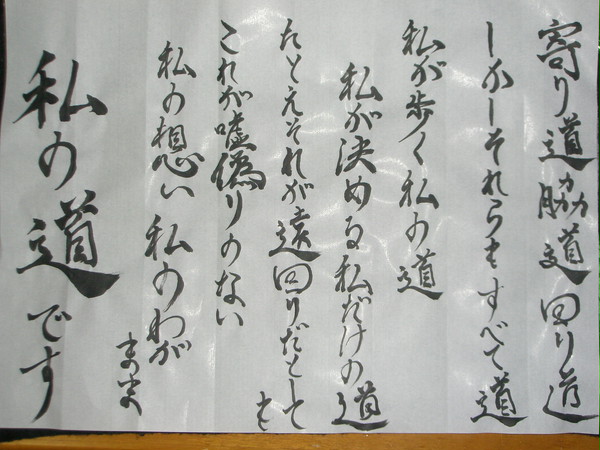 寄り道脇道回り道
しかしそれらもすべて道
私が歩く私の道
私が決める私だけの道
たとえそれが遠回りだとしても
これが嘘偽りのない
私の想い私のわがまま
私の道です